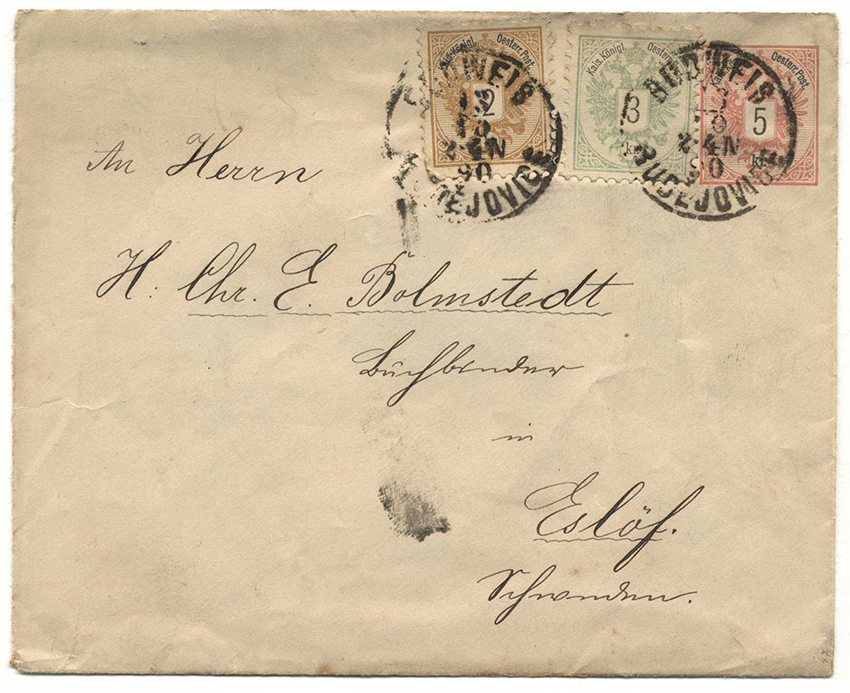 Kais. Königl. Oesterr. Post.
2
Kais. Königl. Oesterr.
3
kr.
Oesterr. Post.
5
kr.
BUDWEIS
2-4N
90
BUDEJOVICE
BUDWEIS
2-4N
90
BUDEJOWICE
An Herrn
H. Chr. E. Bolmstedt
Buchbinder
in
Eslöf.
Schweden.